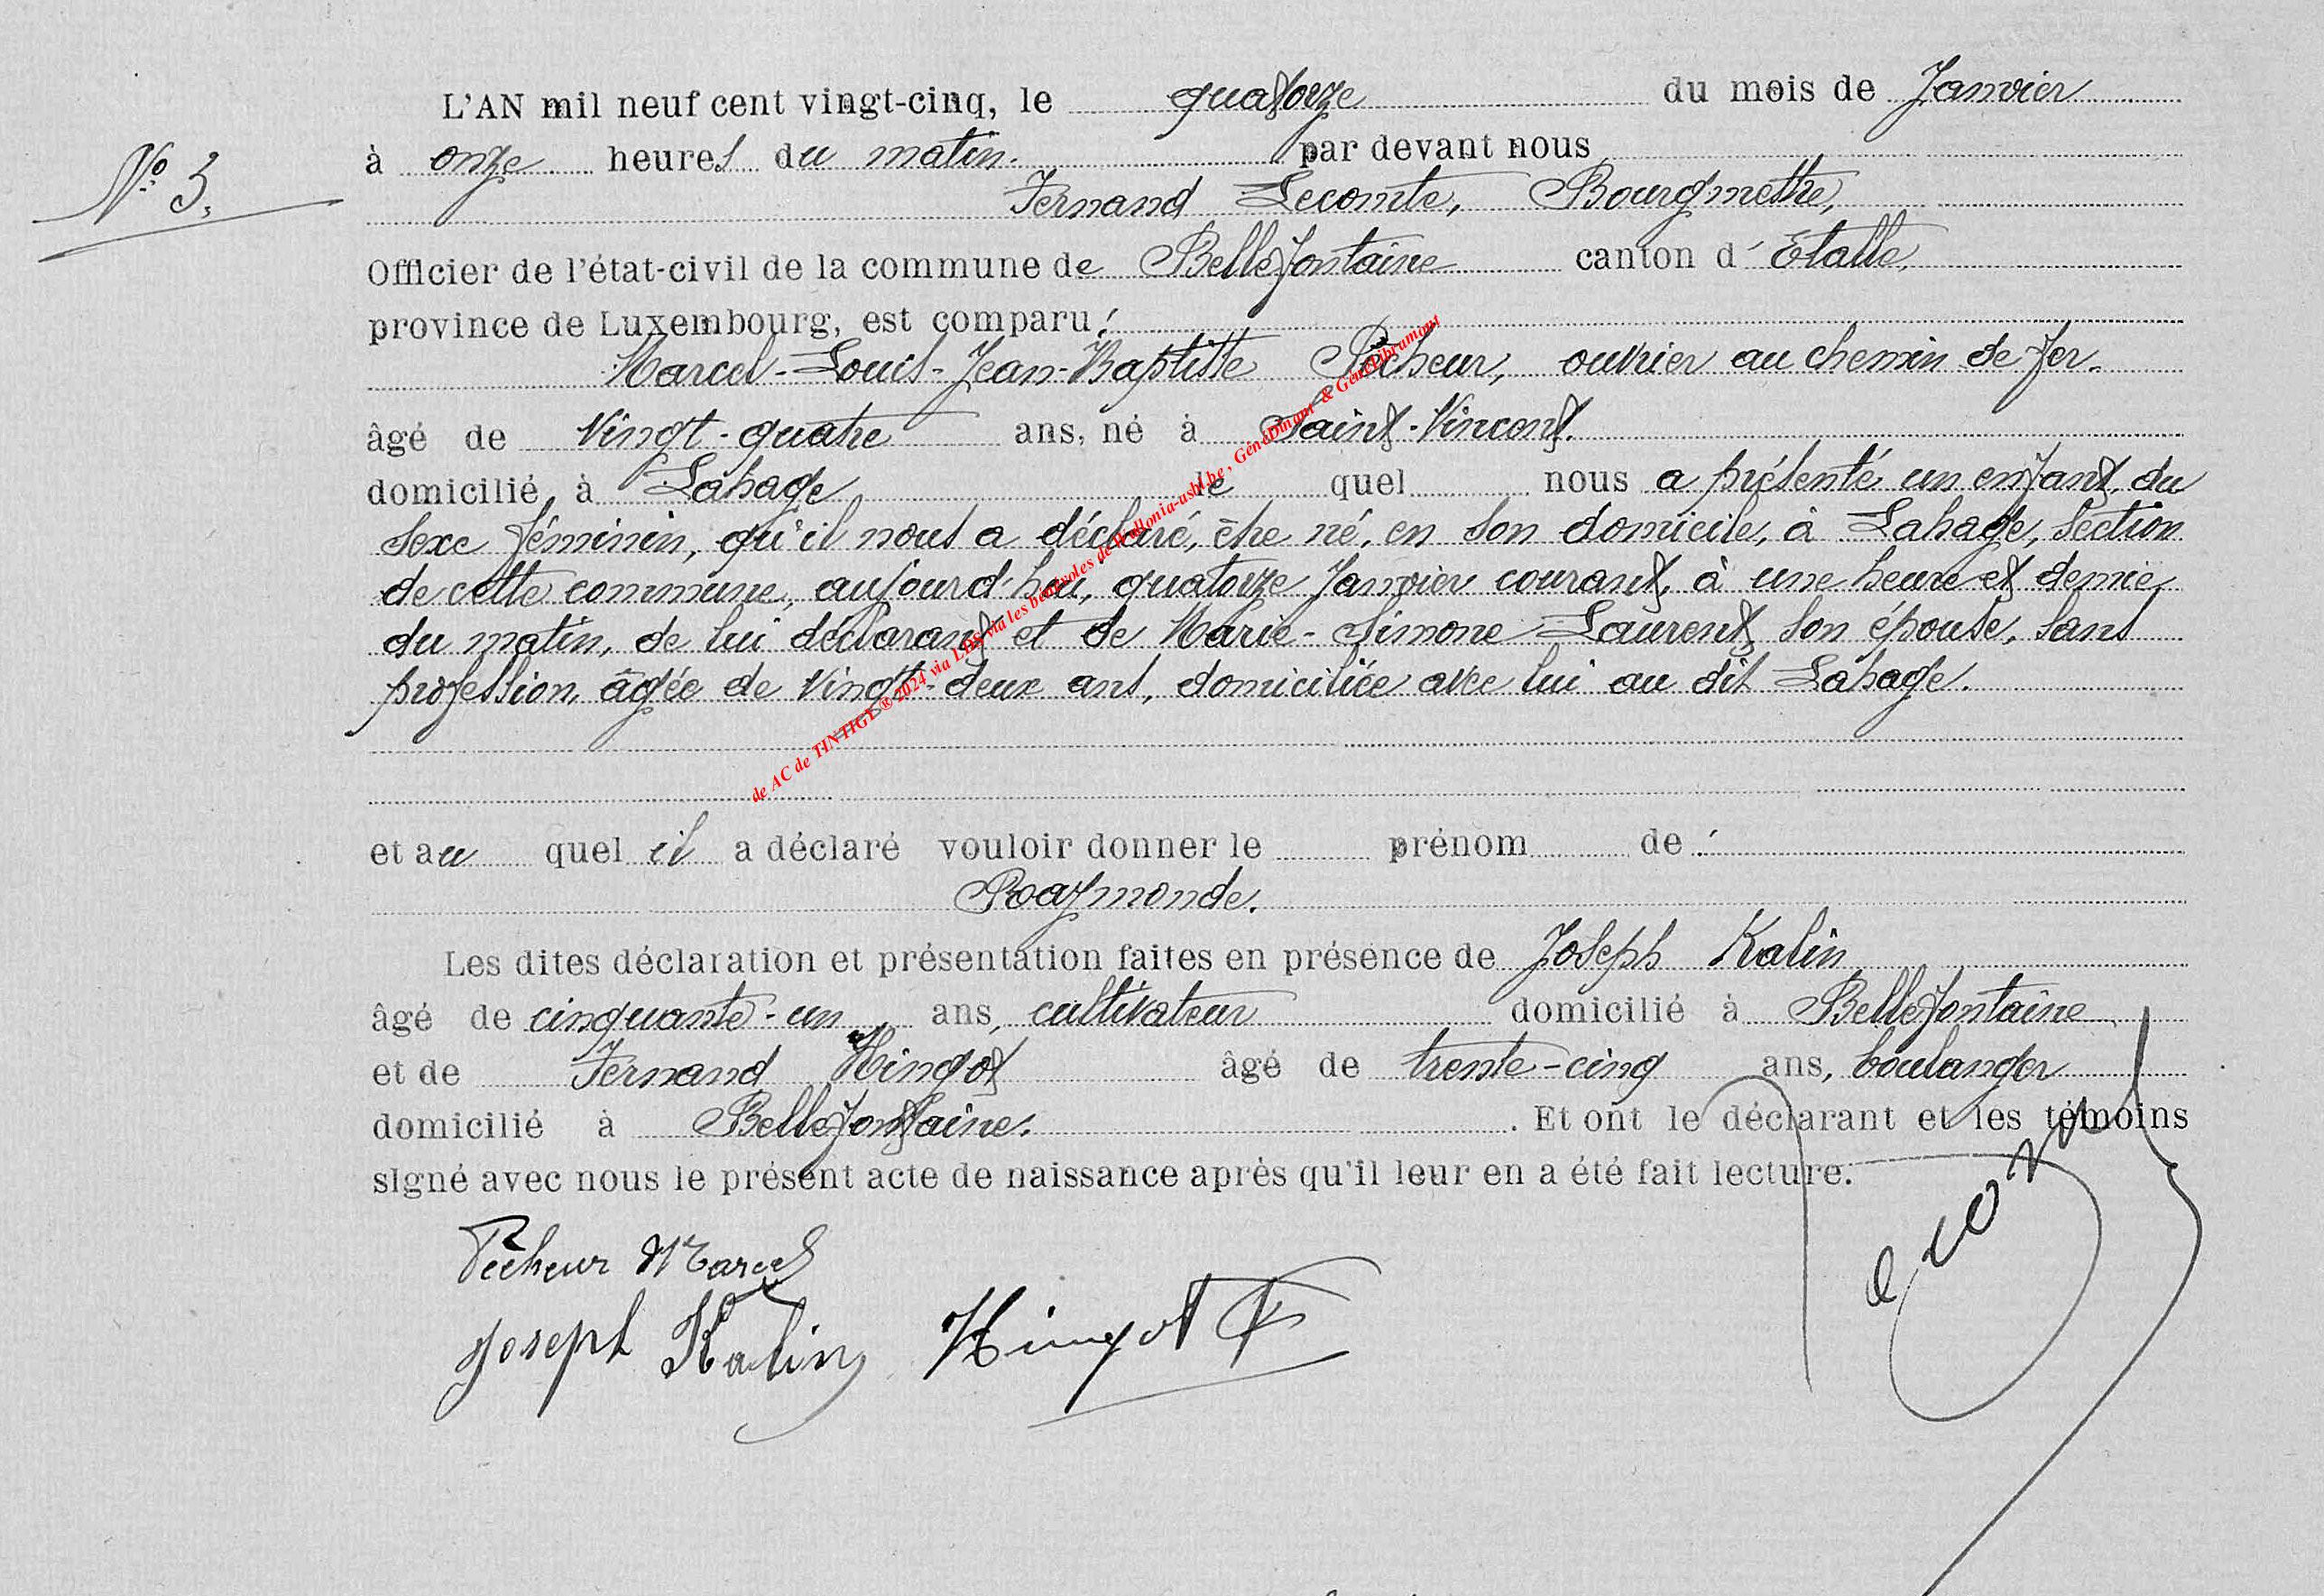 L'AN mil neuf cent vingt-cinq, le quatorze du mois de Janvier
N° 3.
à onze heures du matin. par devant nous
Fernand Lecomte, Bourgmestre,
Officier de l'état-civil de la commune de Bellefontaine canton d'Etalle,
province de Luxembourg, est comparu:
Marcel-Louis-Jean-Baptiste Pêcheur, ouvrier au chemin de fer.
âgé de vingt-quatre ans, né à Saint-Vincent.
domicilié à Lahage le quel nous a présenté un enfant du
sexe féminin, qu'il nous a déclaré, être né, en son domicile, à Lahage, section
de cette commune, aujourd'hui, quatorze Janvier courant, à une heure et demie
du matin, de lui déclarant et de Marie-Simone Laurent, son épouse, sans
profession, âgée de vingt-deux ans, domiciliée avec lui au dit Lahage.
de AC de TINTIGY ® 2024 via LDS via les bénévoles de Wallonia-asbl.be, GénéDinant & GénéLibramont
et au quel il a déclaré vouloir donner le prénom de:
Raymonde.
Les dites déclaration et présentation faites en présence de Joseph Kalin
âgé de cinquante-un ans, cultivateur domicilié à Bellefontaine
et de Fernand Hingot âgé de trente-cinq ans, boulanger
domicilié à Bellefontaine. Et ont le déclarant et les témoins
signé avec nous le présent acte de naissance après qu'il leur en a été fait lecture.
Pêcheur Marcel
Joseph Kalin Hingot F